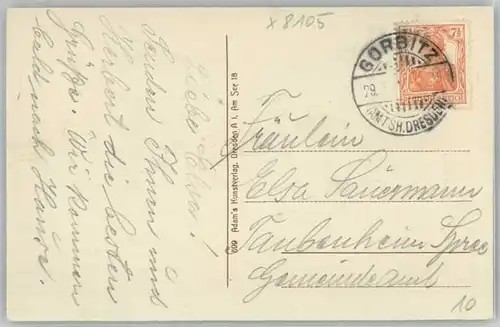 x 8105
Liebe Elsa!
Senden Ihnen und
Herbert die besten
Grüße. Wir kommen
bald nach Hause.
609 Adam's Kunstverlag, Dresden A 1, Am See 18
7½
GORBITZ
29
(AMTSH. DRESDEN)
Fräulein
Elsa Sauermann
Taubenheim Spree
Gemeindeamt
10